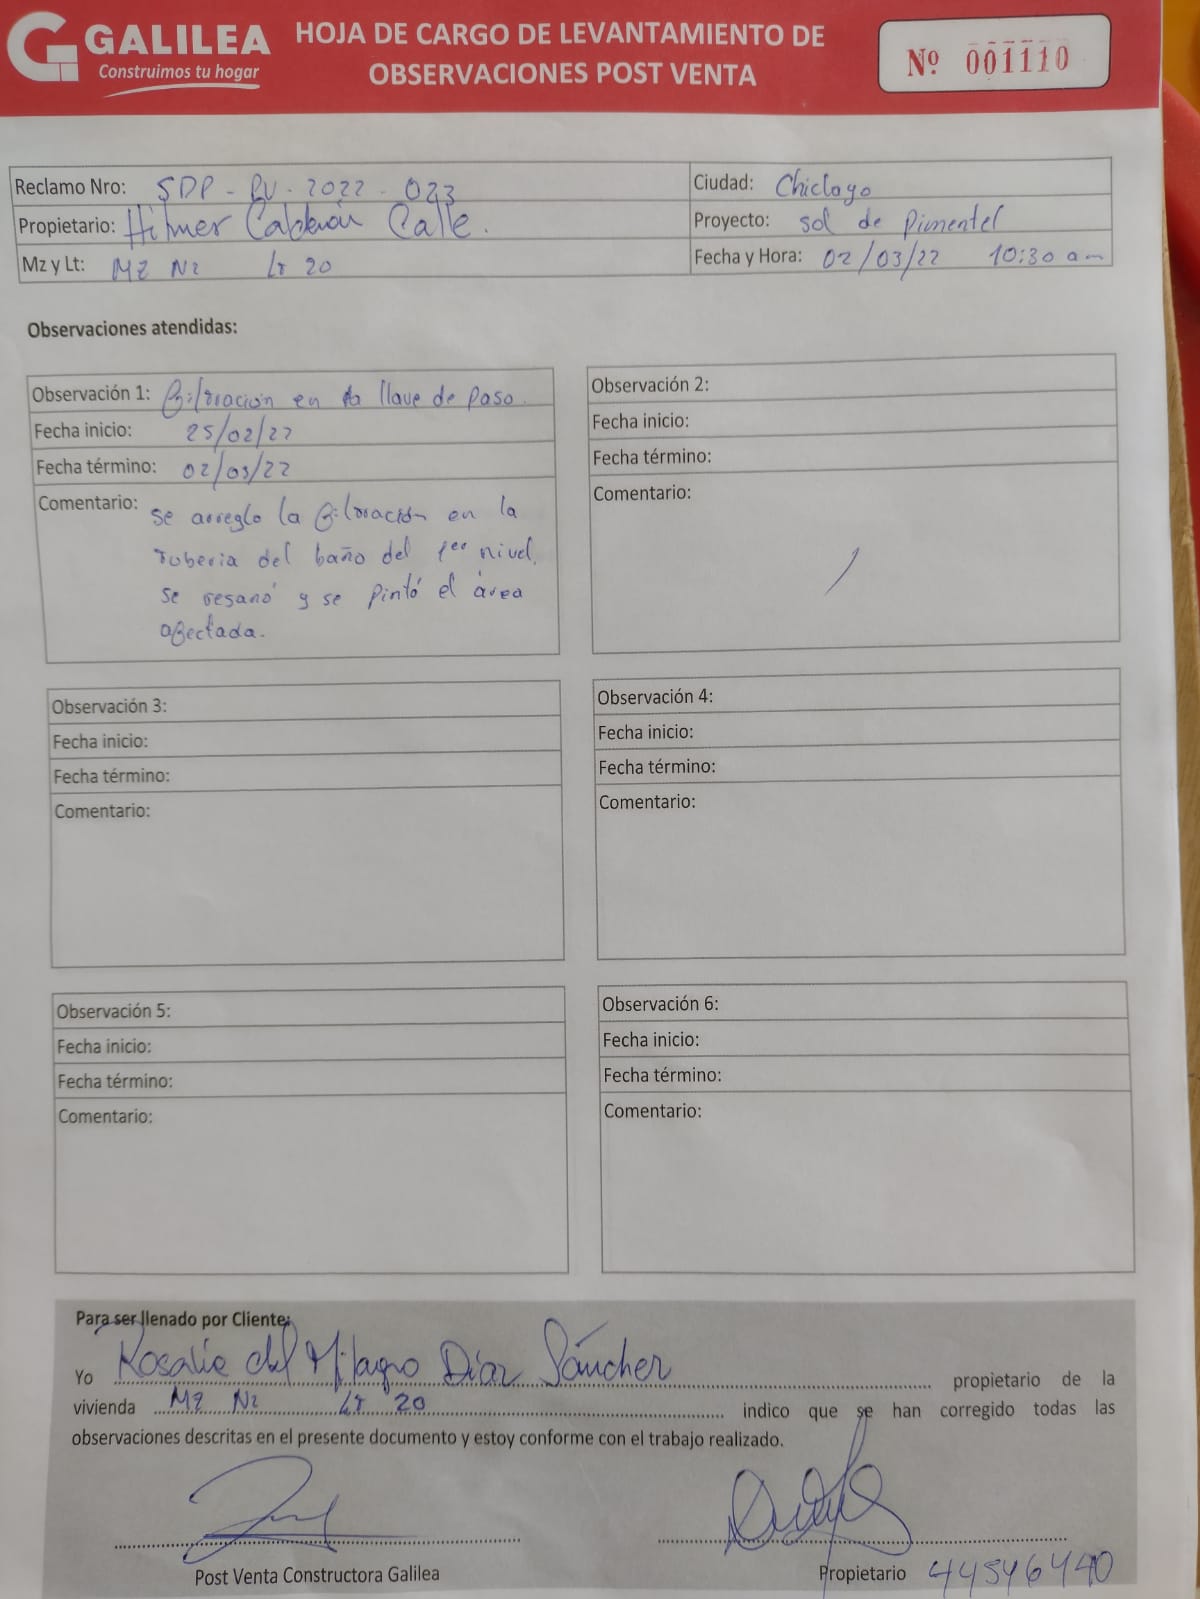 GALILEA
Construimos tu hogar
HOJA DE CARGO DE LEVANTAMIENTO DE
OBSERVACIONES POST VENTA
Nº 001110
Reclamo Nro: SDP - PV - 2022 - 023
Ciudad: Chiclayo
Propietario: Hilmer Calderón Calle.
Proyecto: sol de Pimentel
Mz y Lt: MZ N2 Lt 20
Fecha y Hora: 02/03/22 10:30 am
Observaciones atendidas:
Observación 1: Filtración en la llave de paso.
Fecha inicio: 25/02/22
Fecha término: 02/03/22
Comentario: se arreglo la filtración en la
tuberia del baño del 1er nivel.
se resanó y se pintó el área
afectada.
Observación 2:
Fecha inicio:
Fecha término:
Comentario:
Observación 3:
Fecha inicio:
Fecha término:
Comentario:
Observación 4:
Fecha inicio:
Fecha término:
Comentario:
Observación 5:
Fecha inicio:
Fecha término:
Comentario:
Observación 6:
Fecha inicio:
Fecha término:
Comentario:
Para ser llenado por Cliente:
Yo Rosalie del Milagro Díaz Sánchez propietario de la
vivienda MZ N2 Lt 20 indico que se han corregido todas las
observaciones descritas en el presente documento y estoy conforme con el trabajo realizado.
Post Venta Constructora Galilea
Propietario 44546440